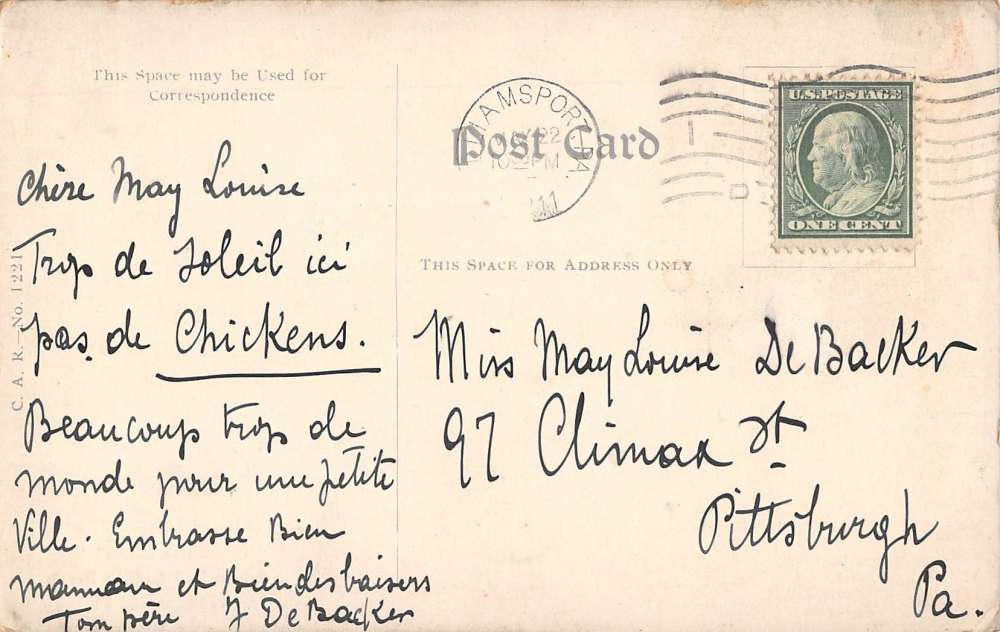 This Space may be Used for
Correspondence
Post Card
IAMSPORT, PA
22
PM
11
U.S. POSTAGE
ONE CENT
THIS SPACE FOR ADDRESS ONLY
C. A. R.—No. 1221
Chère May Louise
Trop de Soleil ici
pas de Chickens.
Beaucoup trop de
monde pour une petite
Ville. Embrasse Bien
Mamman et Bien des baisers
Ton père J DeBacker
Miss May Louise DeBacker
97 Climax St
Pittsburgh
Pa.